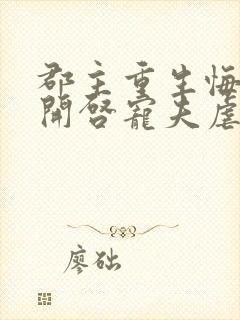 郡主重生悔
開啓寵夫虐
廖础